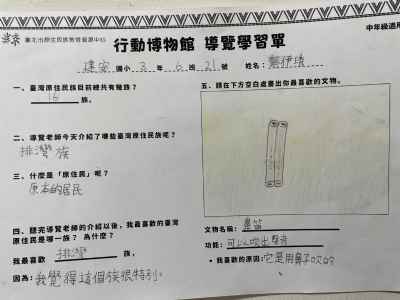 臺北市原住民族教育資源中心
中年級適用
行動博物館 導覽學習單
建安 國小 3 年 6 班 21 號 姓名：
一、臺灣原住民族目前總共有幾族？
16 族。
二、導覽老師今天介紹了哪些臺灣原住民族呢？
排灣族
三、什麼是「原住民」呢？
原本的居民
四、聽完導覽老師的介紹以後，我最喜歡的臺灣
原住民是哪一族？ 為什麼？
我最喜歡 排灣 族，
因為：我覺得這個族很特別。
五、請在下方空白處畫出你最喜歡的文物。
文物名稱：鼻笛
功能：可以吹出聲音
• 我喜歡的原因：它是用鼻子吹的